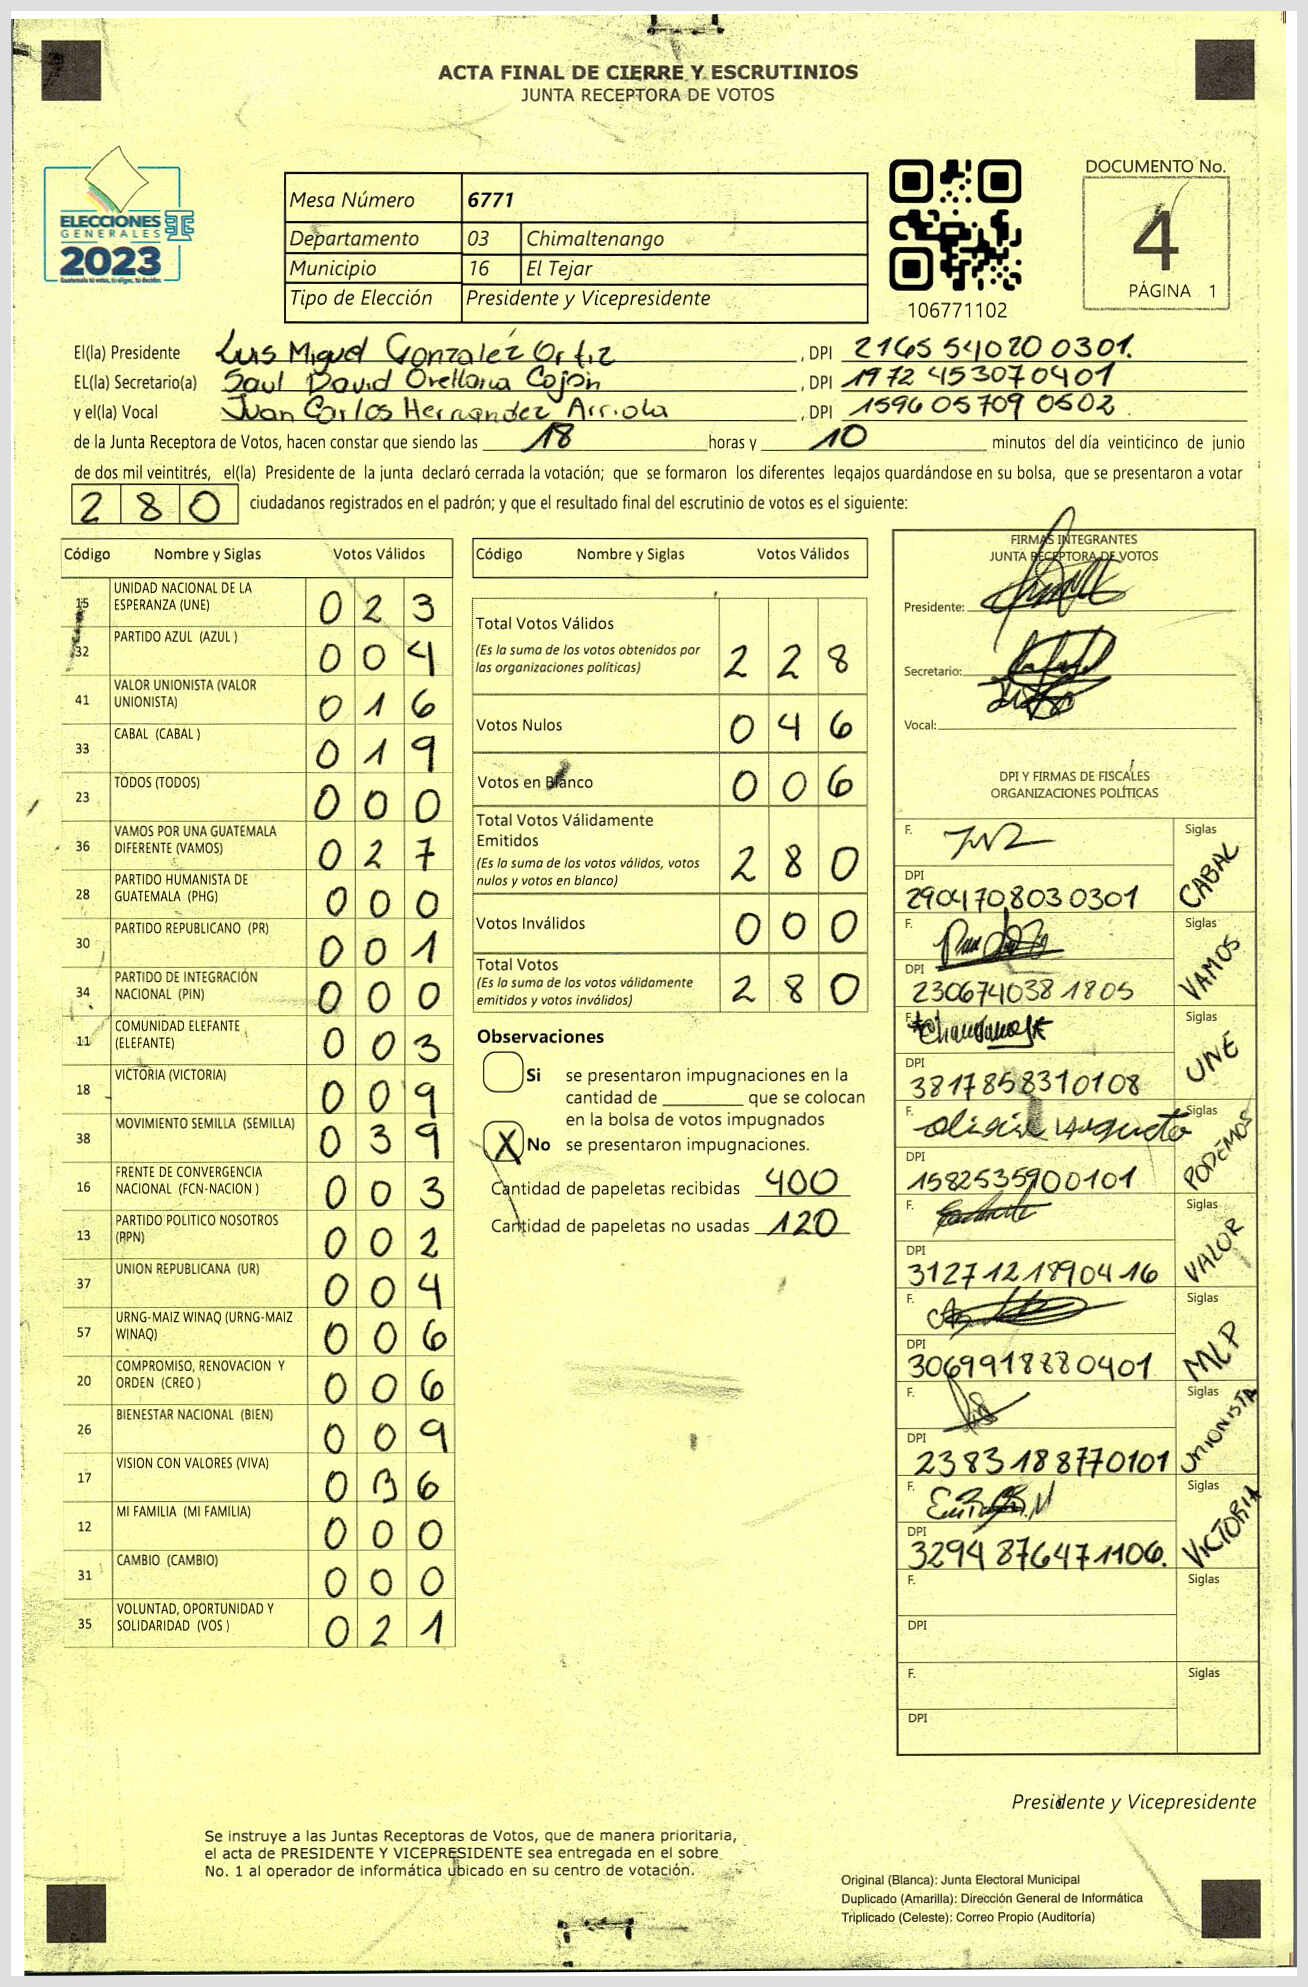 ACTA FINAL DE CIERRE Y ESCRUTINIOS
JUNTA RECEPTORA DE VOTOS
ELECCIONES
GENERALES
2023
Mesa Número 6771
Departamento 03 Chimaltenango
Municipio 16 El Tejar
Tipo de Elección Presidente y Vicepresidente
106771102
DOCUMENTO No.
4
PÁGINA 1
El(la) Presidente Luis Miguel Gonzalez Ortiz, DPI 2165 54020 0301.
EL(la) Secretario(a) Saul David Orellana Cojón, DPI 1972 45307 0401
y el(la) Vocal Juan Carlos Hernandez Arriola, DPI 1596 05709 0502.
de la Junta Receptora de Votos, hacen constar que siendo las 18 horas y 10 minutos del día veinticinco de junio
de dos mil veintitrés, el(la) Presidente de la junta declaró cerrada la votación; que se formaron los diferentes legajos quardándose en su bolsa, que se presentaron a votar
280 ciudadanos registrados en el padrón; y que el resultado final del escrutinio de votos es el siguiente:
Código Nombre y Siglas Votos Válidos
15 UNIDAD NACIONAL DE LA ESPERANZA (UNE) 023
32 PARTIDO AZUL (AZUL ) 004
41 VALOR UNIONISTA (VALOR UNIONISTA) 016
33 CABAL (CABAL ) 019
23 TODOS (TODOS) 000
36 VAMOS POR UNA GUATEMALA DIFERENTE (VAMOS) 027
28 PARTIDO HUMANISTA DE GUATEMALA (PHG) 000
30 PARTIDO REPUBLICANO (PR) 001
34 PARTIDO DE INTEGRACIÓN NACIONAL (PIN) 000
11 COMUNIDAD ELEFANTE (ELEFANTE) 003
18 VICTORIA (VICTORIA) 009
38 MOVIMIENTO SEMILLA (SEMILLA) 039
16 FRENTE DE CONVERGENCIA NACIONAL (FCN-NACION ) 003
13 PARTIDO POLITICO NOSOTROS (PPN) 002
37 UNION REPUBLICANA (UR) 004
57 URNG-MAIZ WINAQ (URNG-MAIZ WINAQ) 006
20 COMPROMISO, RENOVACION Y ORDEN (CREO ) 006
26 BIENESTAR NACIONAL (BIEN) 009
17 VISION CON VALORES (VIVA) 036
12 MI FAMILIA (MI FAMILIA) 000
31 CAMBIO (CAMBIO) 000
35 VOLUNTAD, OPORTUNIDAD Y SOLIDARIDAD (VOS ) 021
Código Nombre y Siglas Votos Válidos
Total Votos Válidos
(Es la suma de los votos obtenidos por
las organizaciones políticas) 228
Votos Nulos 046
Votos en Blanco 006
Total Votos Válidamente
Emitidos
(Es la suma de los votos válidos, votos
nulos y votos en blanco) 280
Votos Inválidos 000
Total Votos
(Es la suma de los votos válidamente
emitidos y votos inválidos) 280
Observaciones
Si se presentaron impugnaciones en la
cantidad de ________ que se colocan
en la bolsa de votos impugnados
X No se presentaron impugnaciones.
Cantidad de papeletas recibidas 400
Cantidad de papeletas no usadas 120
FIRMAS INTEGRANTES
JUNTA RECEPTORA DE VOTOS
Presidente:
Secretario:
Vocal:
DPI Y FIRMAS DE FISCALES
ORGANIZACIONES POLÍTICAS
F. Siglas CABAL
DPI 2904708030301
F. Siglas VAMOS
DPI 2306740381805
F. Siglas UNE
DPI 3817858310108
F. Siglas PODEMOS
DPI 1582535900101
F. Siglas VALOR
DPI 3127121890416
F. Siglas MLP
DPI 3069918880401
F. Siglas UNIONISTA
DPI 2383188770101
F. Siglas VICTORIA
DPI 3294876471106.
F. Siglas
DPI
F. Siglas
DPI
Presidente y Vicepresidente
Se instruye a las Juntas Receptoras de Votos, que de manera prioritaria,
el acta de PRESIDENTE Y VICEPRESIDENTE sea entregada en el sobre
No. 1 al operador de informática ubicado en su centro de votación.
Original (Blanca): Junta Electoral Municipal
Duplicado (Amarilla): Dirección General de Informática
Triplicado (Celeste): Correo Propio (Auditoría)